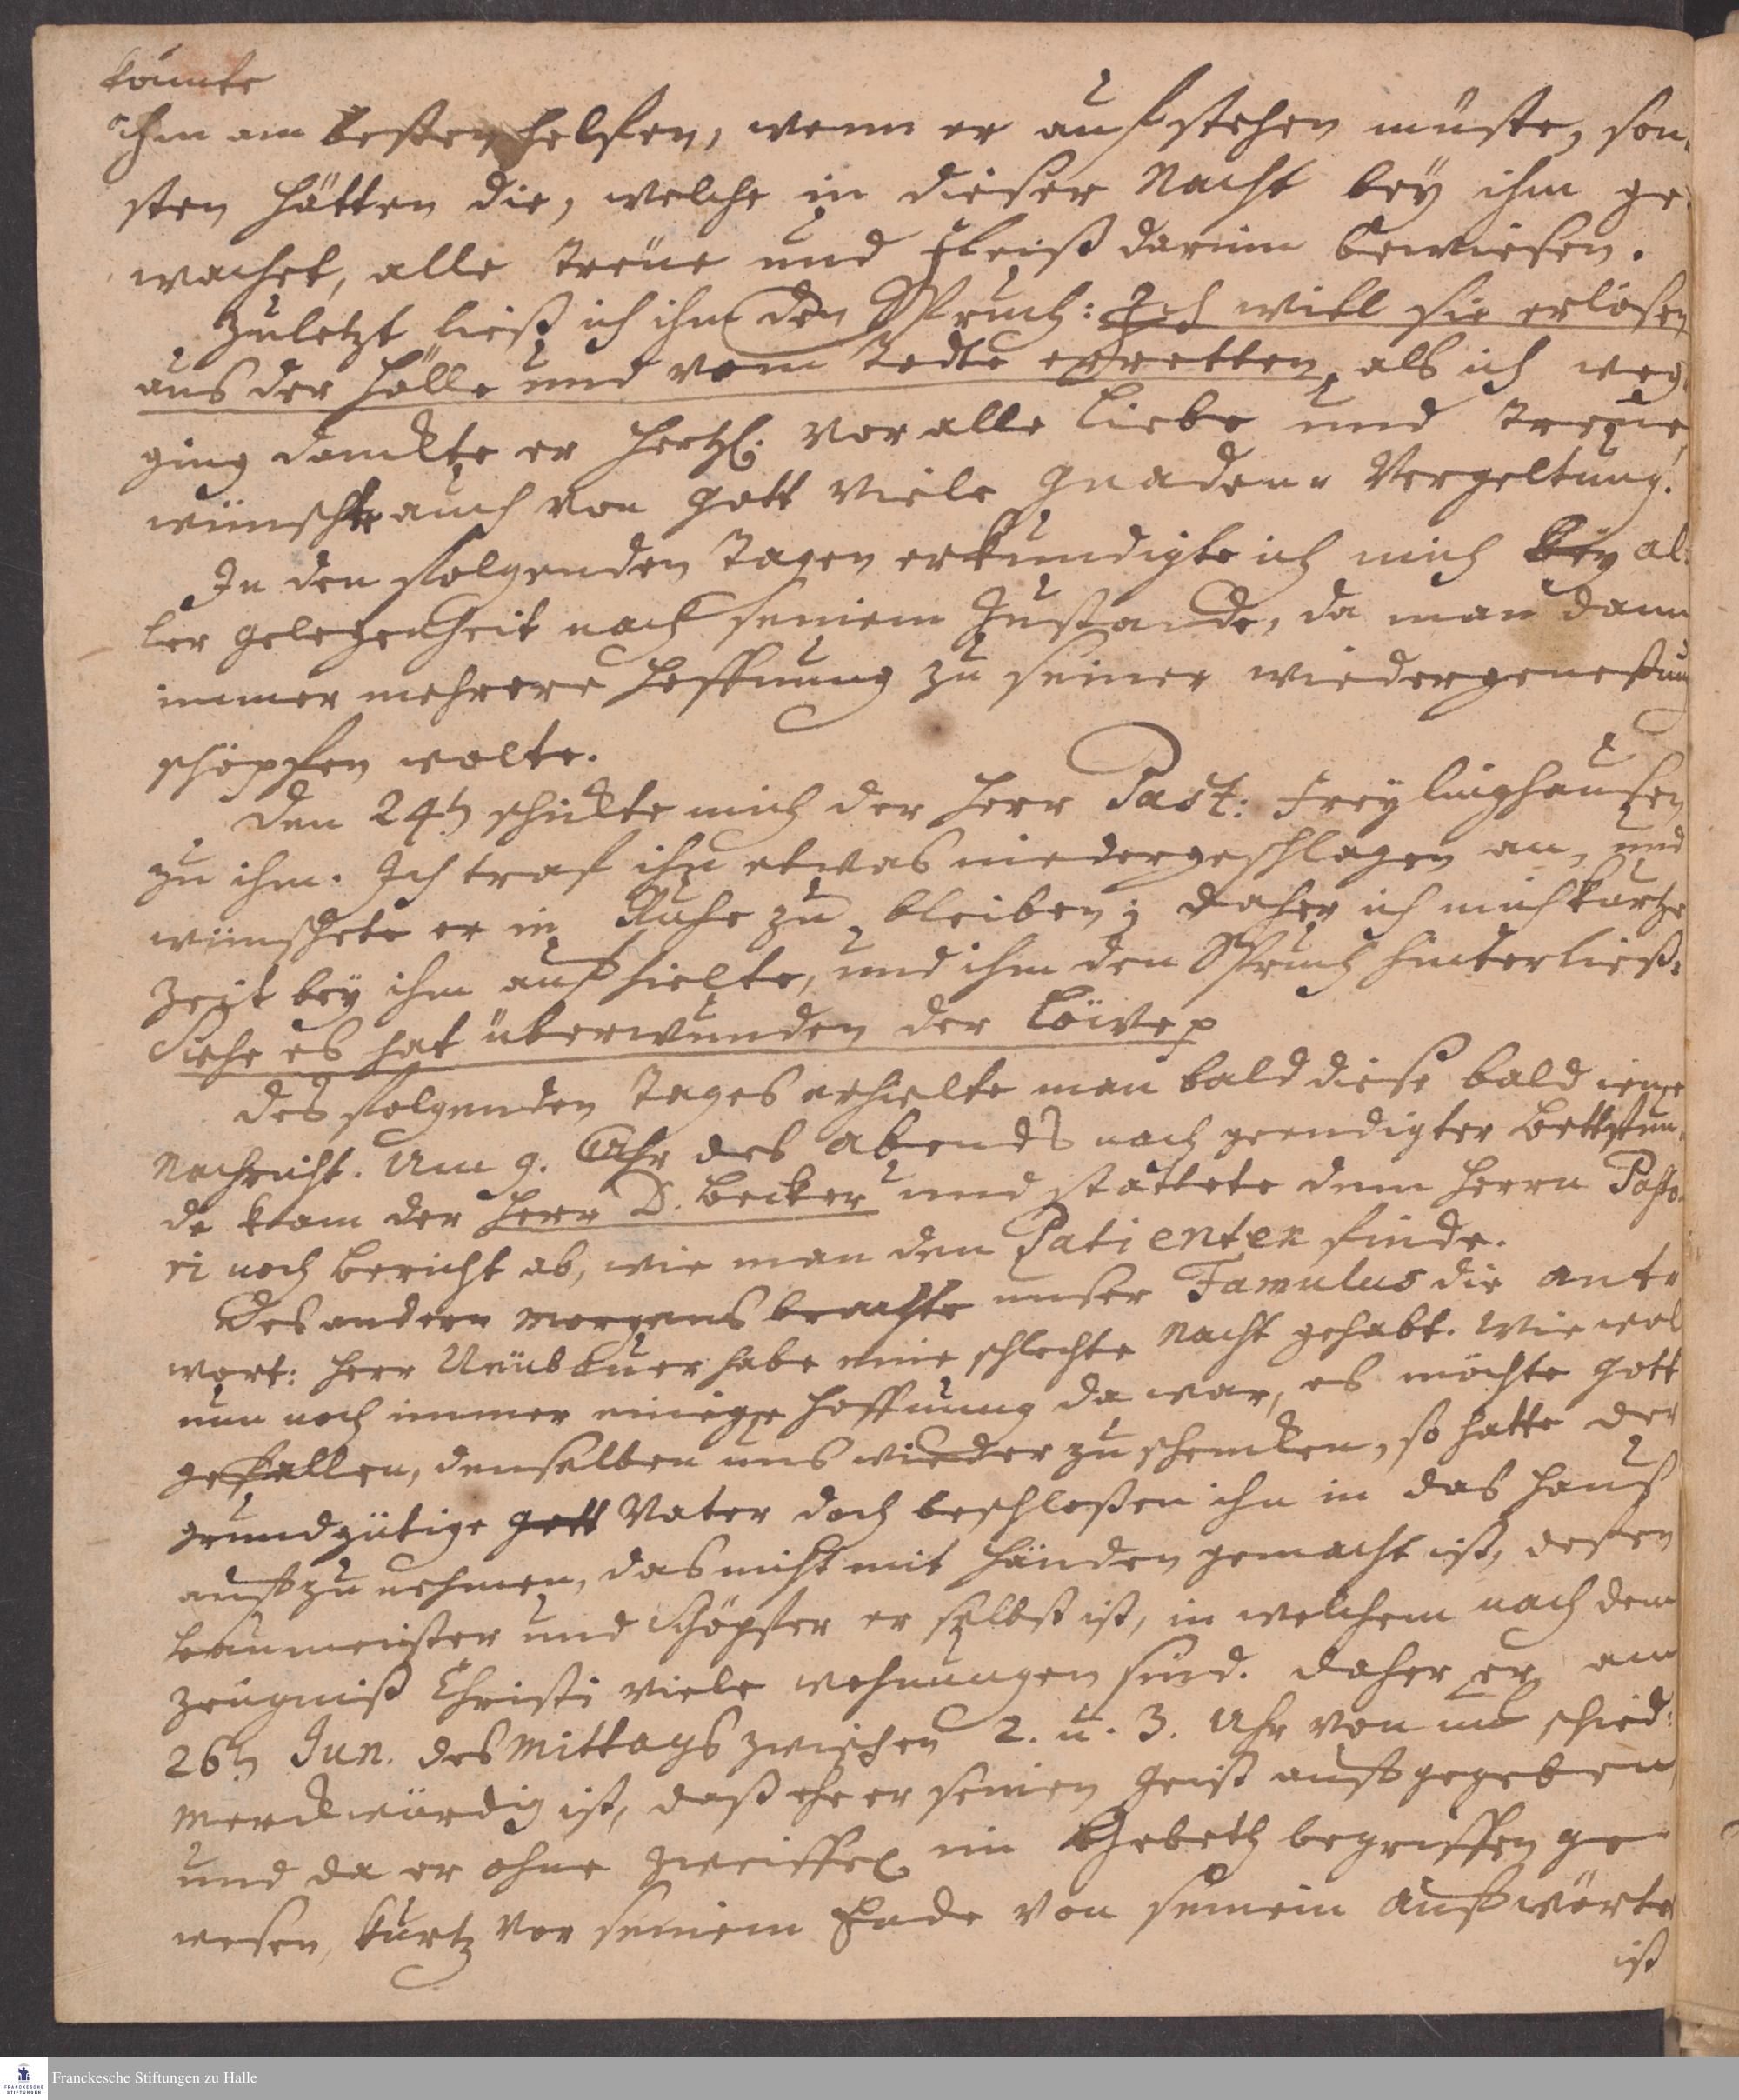 könnte
ihm am besten helfen, wenn er aufstehen müste, son-
sten hätten die, welche in dieser Nacht bey ihm ge-
wachet, alle treüe und Fleiß darinn bewiesen.
Zuletzt ließ ich ihm den Spruch: Ich will sie erlösen
aus der Hölle und vom Todte erretten, als ich weg-
ging danckte er hertzl. vor alle Liebe und treue,
wünschte auch von Gott viele Gnaden-Vergeltung.
In den folgenden Tagen erkundigte ich mich bey al-
ler gelegenheit nach seinem Zustande, da man dann
immer mehrere Hoffnung zu seiner wiedergenesung
schöpfen wolte.
Den 24t. schickte mich der Herr Past: Freylinghausen
zu ihm. Ich traf ihn etwas niedergeschlagen an, und
wünschete er in Ruhe zu bleiben; daher ich mich kurtze
Zeit bey ihm aufhielte, und ihm den Spruch hinterließ:
Siehe es hat überwunden der Löwe
Des folgenden Tages erhielte man bald diese bald iene
Nachricht. Um 9. Uhr des Abends nach geendigter Bettstun-
de kam der Herr D. Becker und stattete dem Herrn Pasto-
ri noch Bericht ab, wie man den Patienten finde.
Des andern Morgens brachte unser Famulus die Ant-
wort: Herr Neübauer habe eine schlechte Nacht gehabt. Wiewol
nun noch immer einige Hoffnung da war, es möchte Gott
gefallen, denselben uns wieder zu schencken, so hatte der
grundgütige Gott Vater doch beschloßen ihn in das Hauß
aufzunehmen, das nicht mit Händen gemacht ist, deßen
Baumeister und Schöpfer er selbst ist, in welchem nach dem
Zeügniß Christi viele wohnungen sind. Daher er am
26t. Jun. des Mittags zwischen 2. u. 3. Uhr von uns schied.
Merckwürdig ist, daß ehe er seinen Geist aufgegeben,
und da er ohne Zweiffel im Gebeth begriffen ge-
wesen, kurtz vor seinem Ende von seinem Aufwärter
ist
Franckesche Stiftungen zu Halle
FRANCKESCHE
STIFTUNGEN